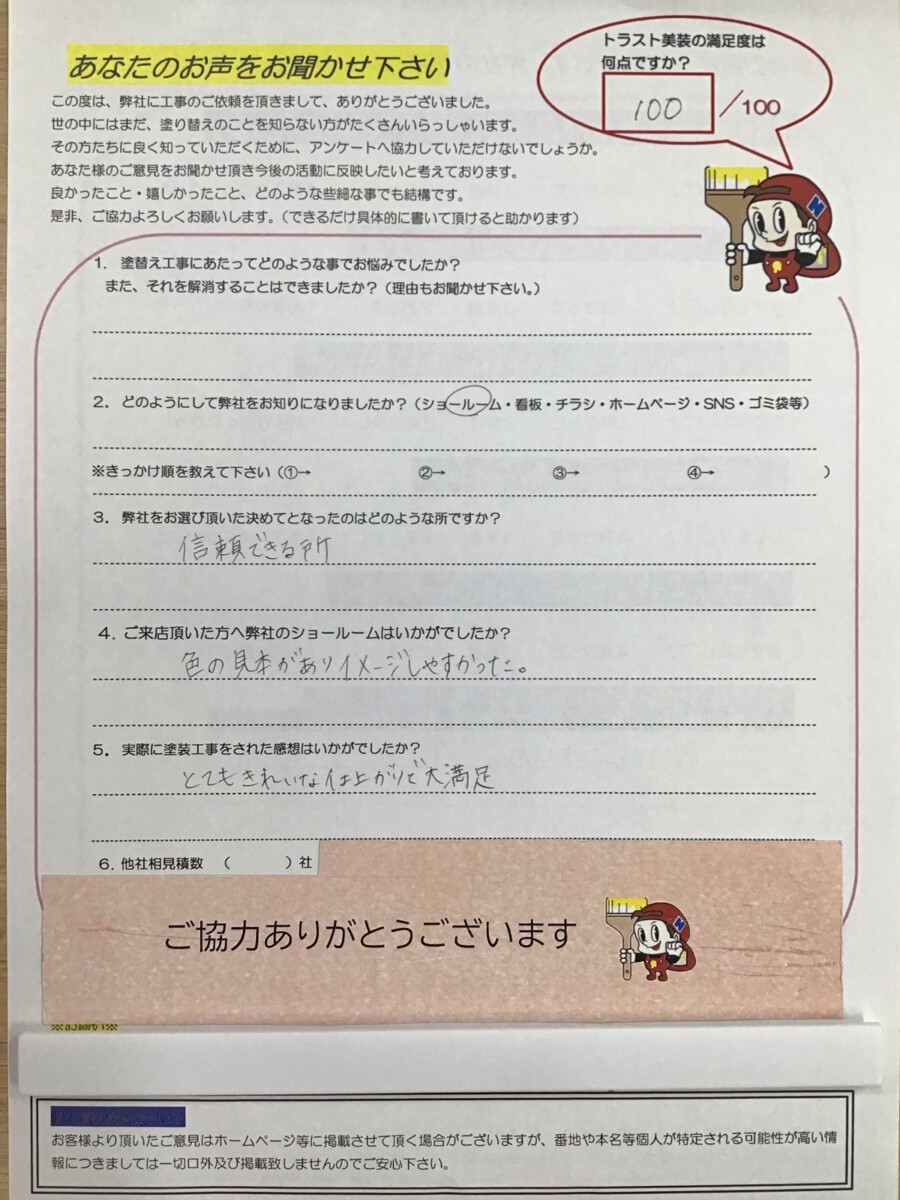 あなたのお声をお聞かせ下さい
トラスト美装の満足度は
何点ですか？
100／100
この度は、弊社に工事のご依頼を頂きまして、ありがとうございました。
世の中にはまだ、塗り替えのことを知らない方がたくさんいらっしゃいます。
その方たちに良く知っていただくために、アンケートへ協力していただけないでしょうか。
あなた様のご意見をお聞かせ頂き今後の活動に反映したいと考えております。
良かったこと・嬉しかったこと、どのような些細な事でも結構です。
是非、ご協力よろしくお願いします。（できるだけ具体的に書いて頂けると助かります）
1．塗替え工事にあたってどのような事でお悩みでしたか？
また、それを解消することはできましたか？（理由もお聞かせ下さい。）
2．どのようにして弊社をお知りになりましたか？（ショールーム・看板・チラシ・ホームページ・SNS・ゴミ袋等）
※きっかけ順を教えて下さい（①→ ②→ ③→ ④→ ）
3．弊社をお選び頂いた決めてとなったのはどのような所ですか？
信頼できる所
4．ご来店頂いた方へ弊社のショールームはいかがでしたか？
色の見本がありイメージしやすかった。
5．実際に塗装工事をされた感想はいかがでしたか？
とてもきれいな仕上がりで大満足
6．他社相見積数 （ ）社
ご協力ありがとうございます
お客様より頂いたご意見はホームページ等に掲載させて頂く場合がございますが、番地や本名等個人が特定される可能性が高い情
報につきましては一切口外及び掲載致しませんのでご安心下さい。